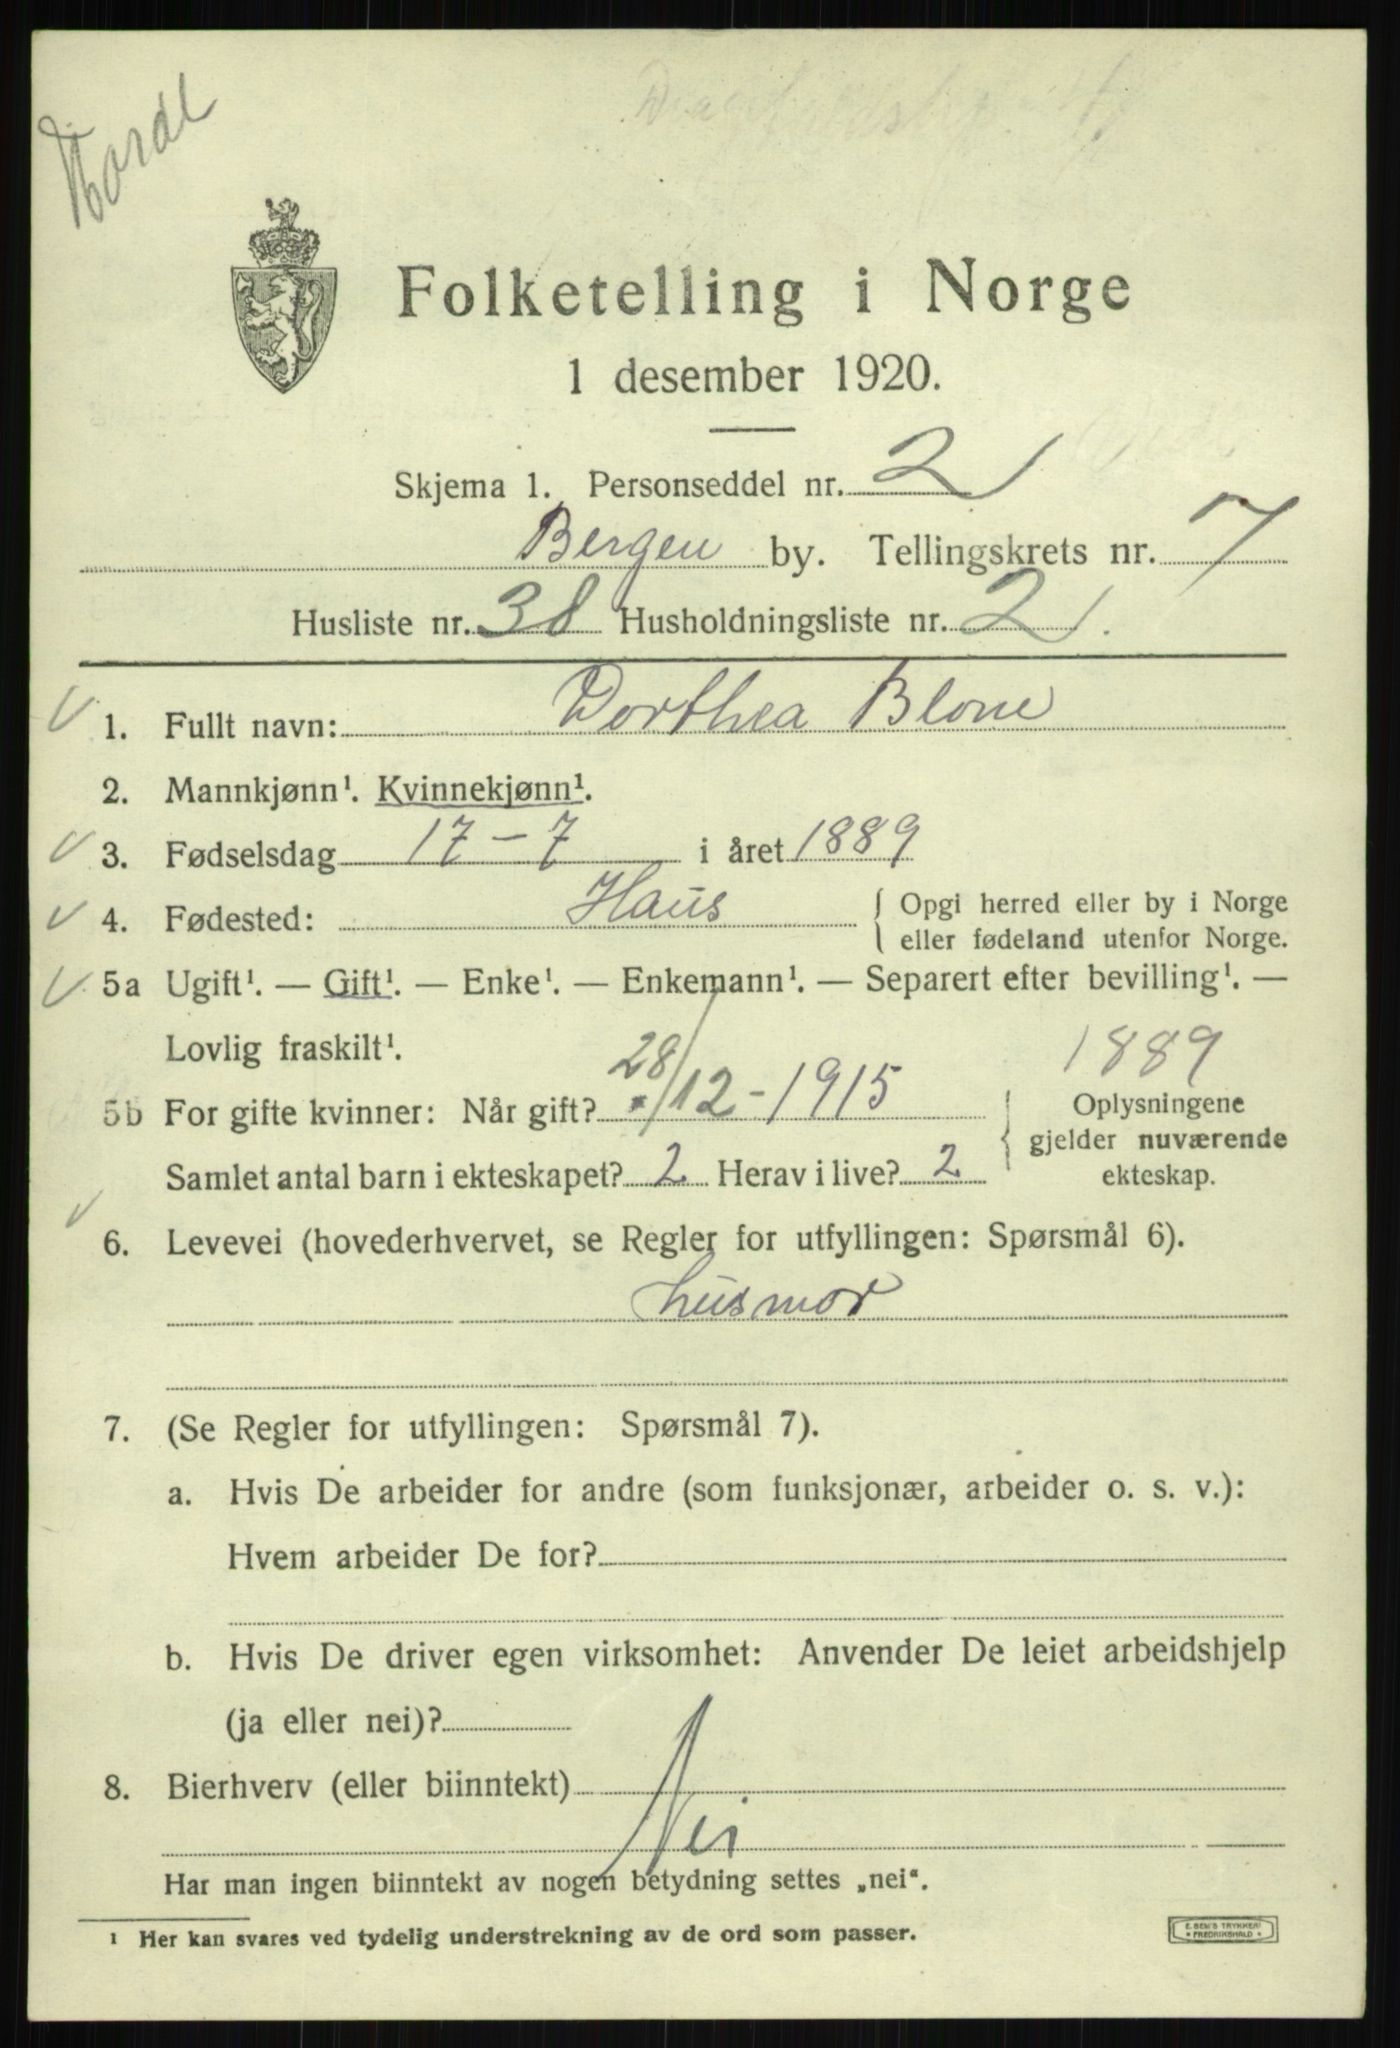 Horde
Folketelling i Norge
1 desember 1920.
Skjema 1. Personseddel nr. 2
Bergen by. Tellingskrets nr. 7
Husliste nr. 38 Husholdningsliste nr. 2
1. Fullt navn: Dorthea Blom
2. Mannkjønn¹. Kvinnekjønn¹.
3. Fødselsdag 17-7 i året 1889
4. Fødested: Haus { Opgi herred eller by i Norge
eller fødeland utenfor Norge.
5a Ugift¹. — Gift¹. — Enke¹. — Enkemann¹. — Separert efter bevilling¹. —
Lovlig fraskilt¹.
1889
5b For gifte kvinner: Når gift? 28/12-1915
Samlet antal barn i ekteskapet? 2 Herav i live? 2
Oplysningene
gjelder nuværende
ekteskap.
6. Levevei (hovederhvervet, se Regler for utfyllingen: Spørsmål 6).
husmor
7. (Se Regler for utfyllingen: Spørsmål 7).
a. Hvis De arbeider for andre (som funksjonær, arbeider o. s. v.):
Hvem arbeider De for?
b. Hvis De driver egen virksomhet: Anvender De leiet arbeidshjelp
(ja eller nei)?
8. Bierhverv (eller biinntekt)
Nei
Har man ingen biinntekt av nogen betydning settes „nei“.
¹ Her kan svares ved tydelig understrekning av de ord som passer.
E. SEM'S TRYKKERI
* FREDRIKSHALD *